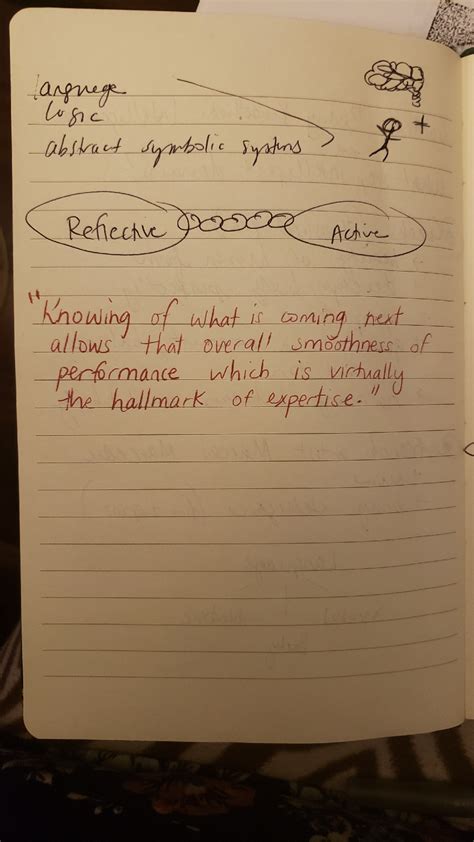 language
Logic
abstract symbolic systems
+
Reflective Active
"Knowing of what is coming next
allows that overall smoothness of
performance which is virtually
the hallmark of expertise."